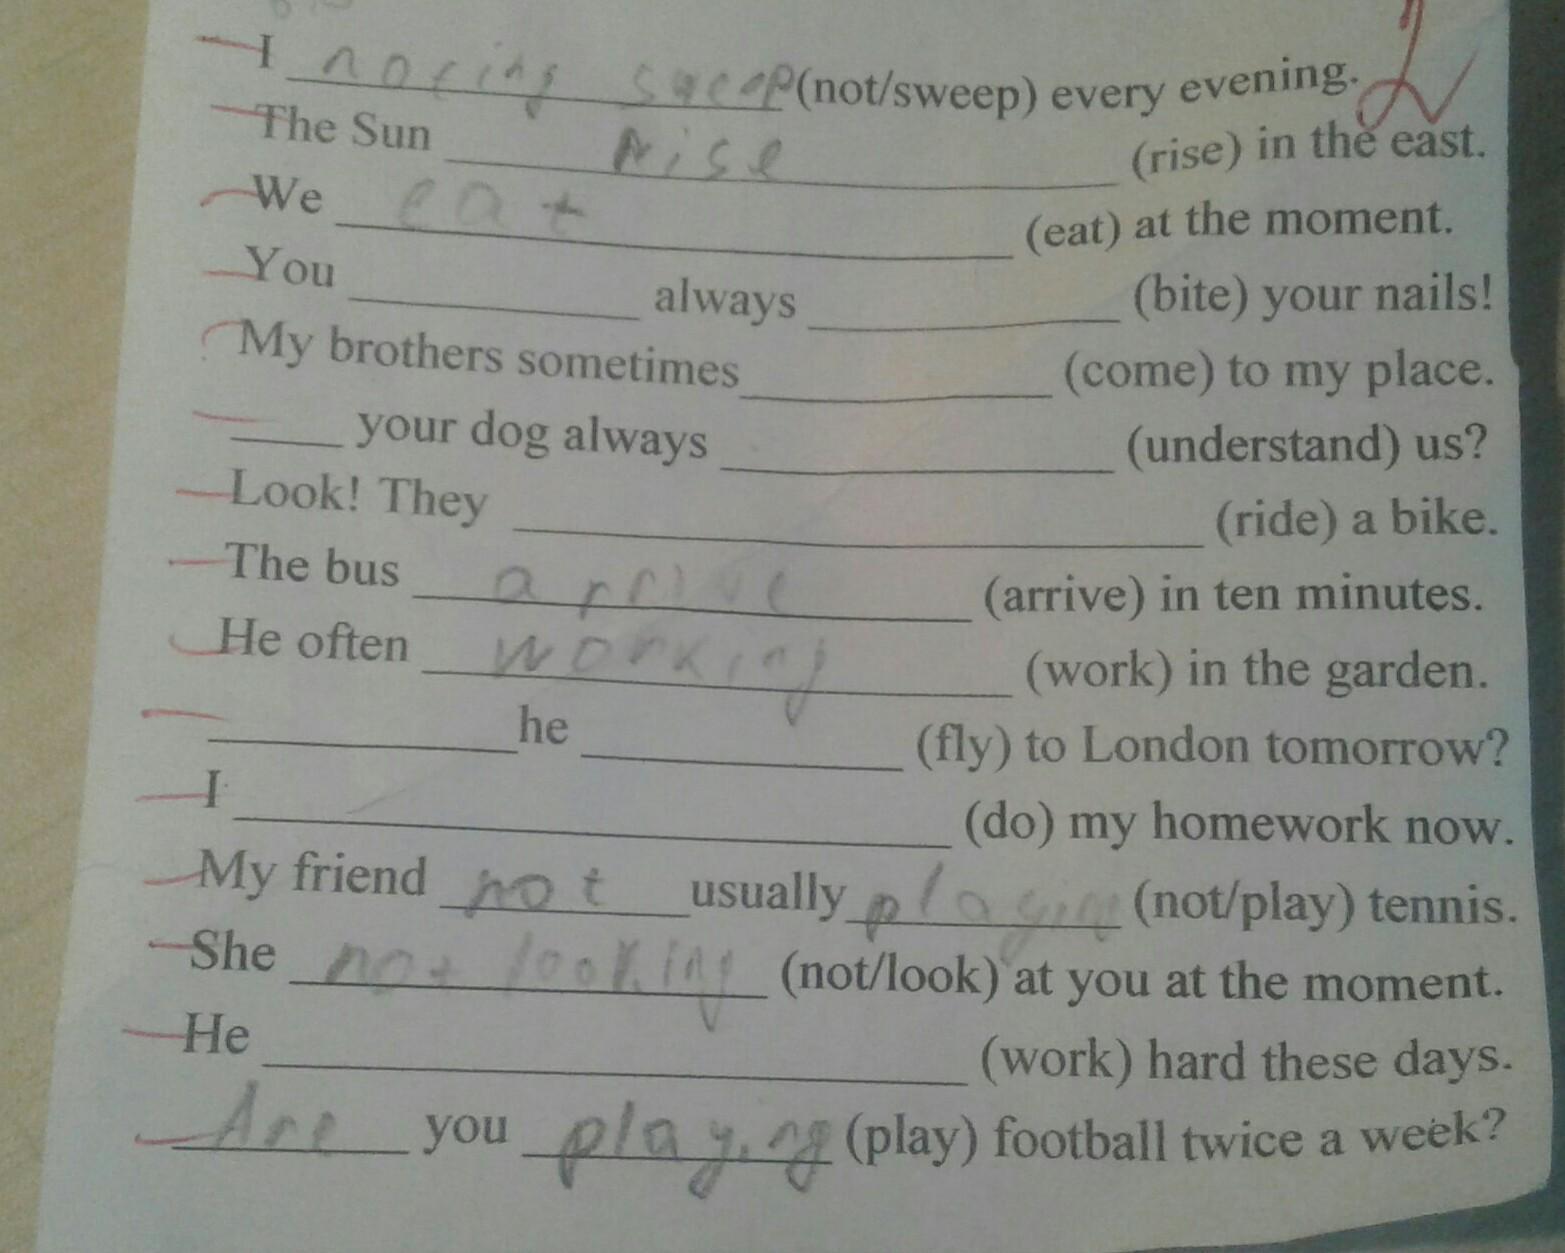 I noting sweep (not/sweep) every evening. 2
The Sun rise (rise) in the east.
We eat (eat) at the moment.
You ________ always ________ (bite) your nails!
My brothers sometimes ________ (come) to my place.
____ your dog always ________ (understand) us?
Look! They ________ (ride) a bike.
The bus arrive (arrive) in ten minutes.
He often working (work) in the garden.
________ he ________ (fly) to London tomorrow?
I ________ (do) my homework now.
My friend not usually playing (not/play) tennis.
She not looking (not/look) at you at the moment.
He ________ (work) hard these days.
Are you playing (play) football twice a week?